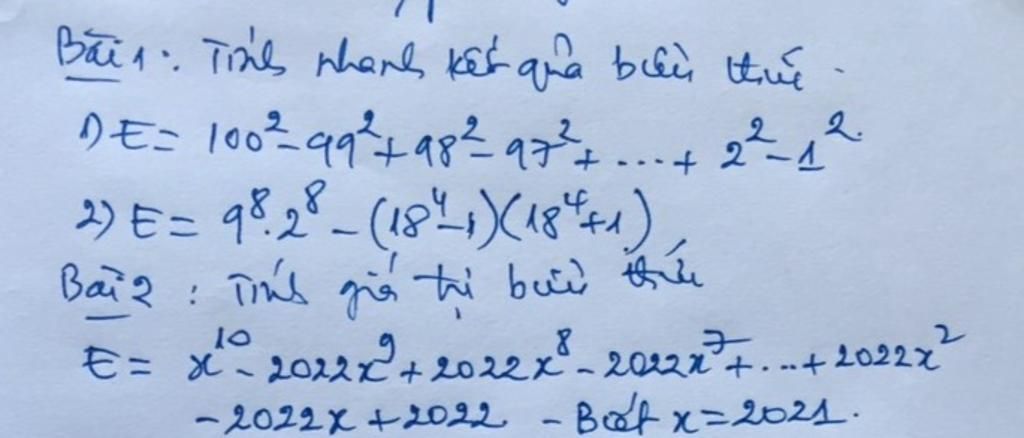 Bài 1: Tính nhanh kết quả biểu thức.
1) E = 100² - 99² + 98² - 97² + ... + 2² - 1².
2) E = 9⁸.2⁸ - (18⁴-1)(18⁴+1)
Bài 2: Tính giá trị biểu thức
E = x¹⁰ - 2022x⁹ + 2022x⁸ - 2022x⁷ + ... + 2022x²
- 2022x + 2022 - Biết x = 2021.